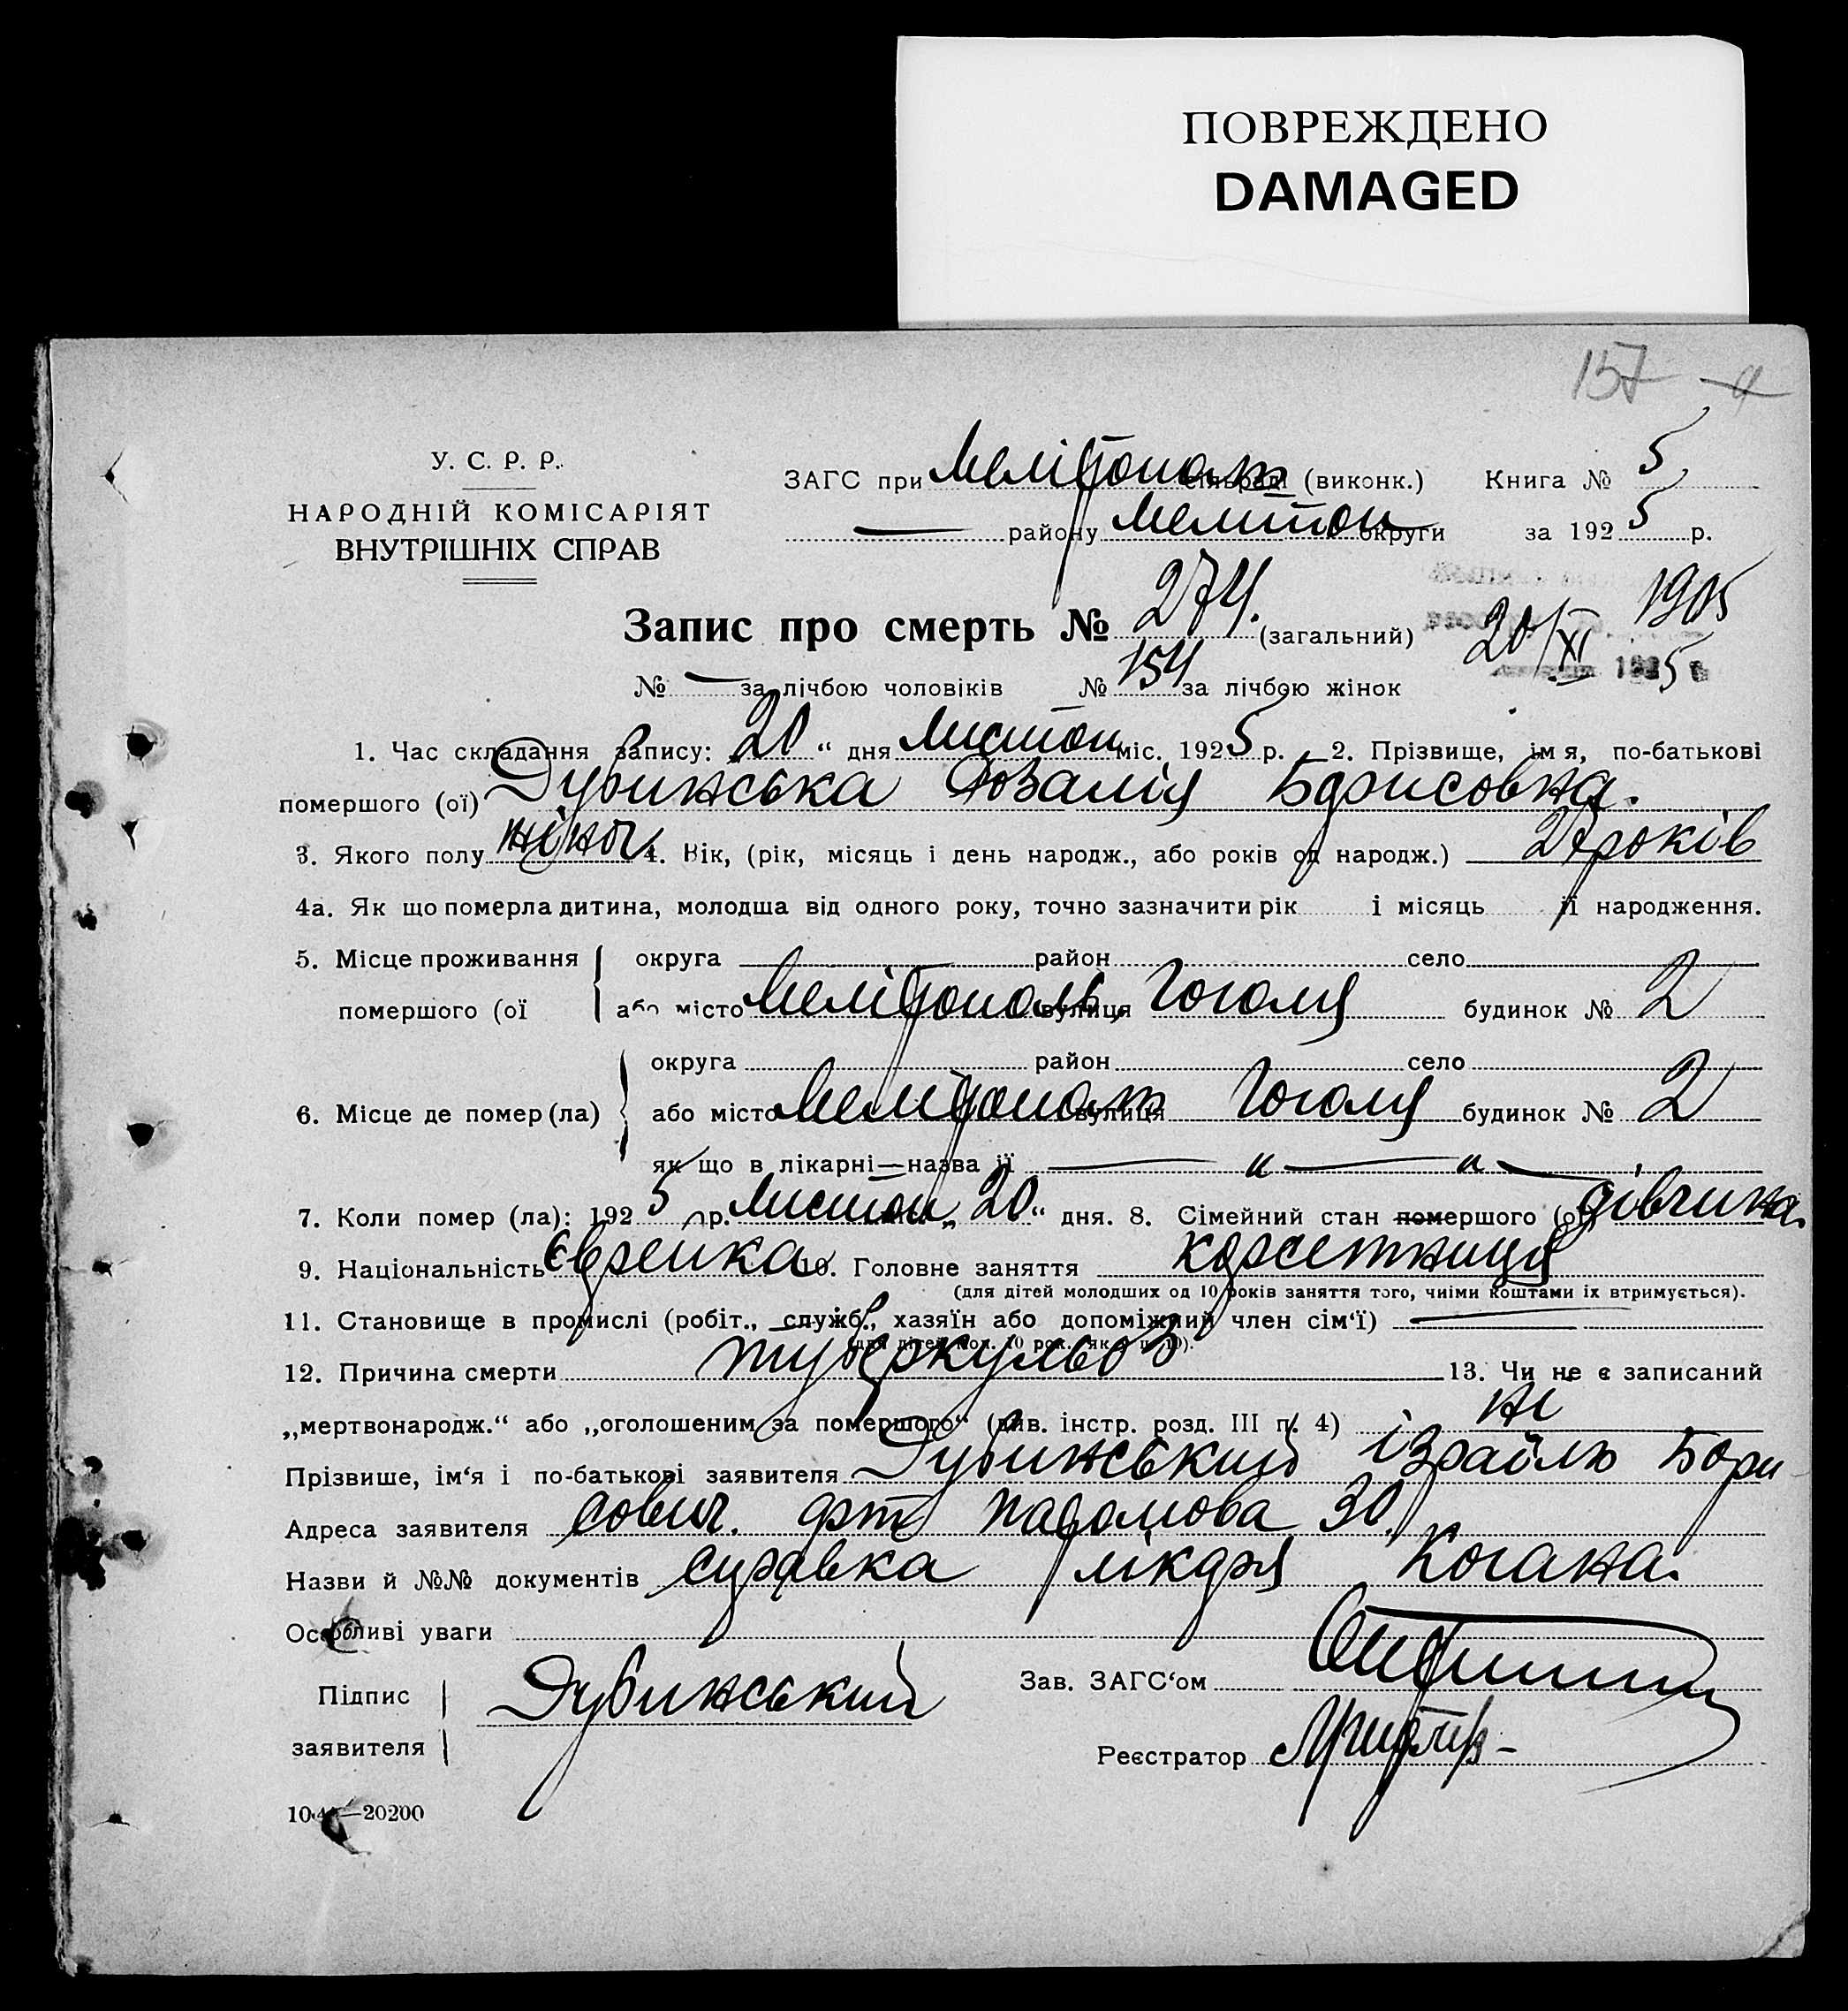 ПОВРЕЖДЕНО
DAMAGED
157
У. С. Р. Р.
НАРОДНІЙ КОМІСАРІЯТ
ВНУТРІШНІХ СПРАВ
ЗАГС при Мелітопол (виконк.) Книга № 5
— району Мелітоп округи за 1925 р.
Запис про смерть № 274. (загальний) 20/XI 1905
№ — за лічбою чоловіків № 154 за лічбою жінок 1925
1. Час складання запису: 20 “ дня Листоп міс. 1925 р. 2. Прізвище, ім я, по-батькові
помершого (ої) Дубинська Розалія Борисовна.
3. Якого полу жіноч 4. Вік, (рік, місяць і день народж., або років од народж.) років
4а. Як що померла дитина, молодша від одного року, точно зазначити рік і місяць її народження.
5. Місце проживання округа район село
помершого (ої або місто Мелітополь вулиця Гоголя будинок № 2
округа район село
6. Місце де помер (ла) або місто Мелітополь вулиця Гоголя будинок № 2
як що в лікарні—назва її — „ — „ —
7. Коли помер (ла): 1925 р. Листоп „ 20 “ дня. 8. Сімейний стан помершого (ої) дівчина.
9. Національність Єврейка 10. Головне заняття корсетниця
(для дітей молодших од 10 років заняття того, чиїми коштами їх втримується).
11. Становище в промислі (робіт., служб., хазяїн або допоміжний член сім‘ї) —
(для дітей мол. 10 рок. як в п. 10).
12. Причина смерти туберкульоз 13. Чи не є записаний
„мертвонародж.“ або „оголошеним за помершого“ (див. інстр. розд. III п. 4) Ні
Прізвише, ім‘я і по-батькові заявителя Дубинський Ізраїль Бори-
Адреса заявителя сович. 30.
Назви й №№ документів справка лікаря Когана.
Особливі уваги
Підпис заявителя Дубинський
Зав. ЗАГС‘ом
Реєстратор
20200